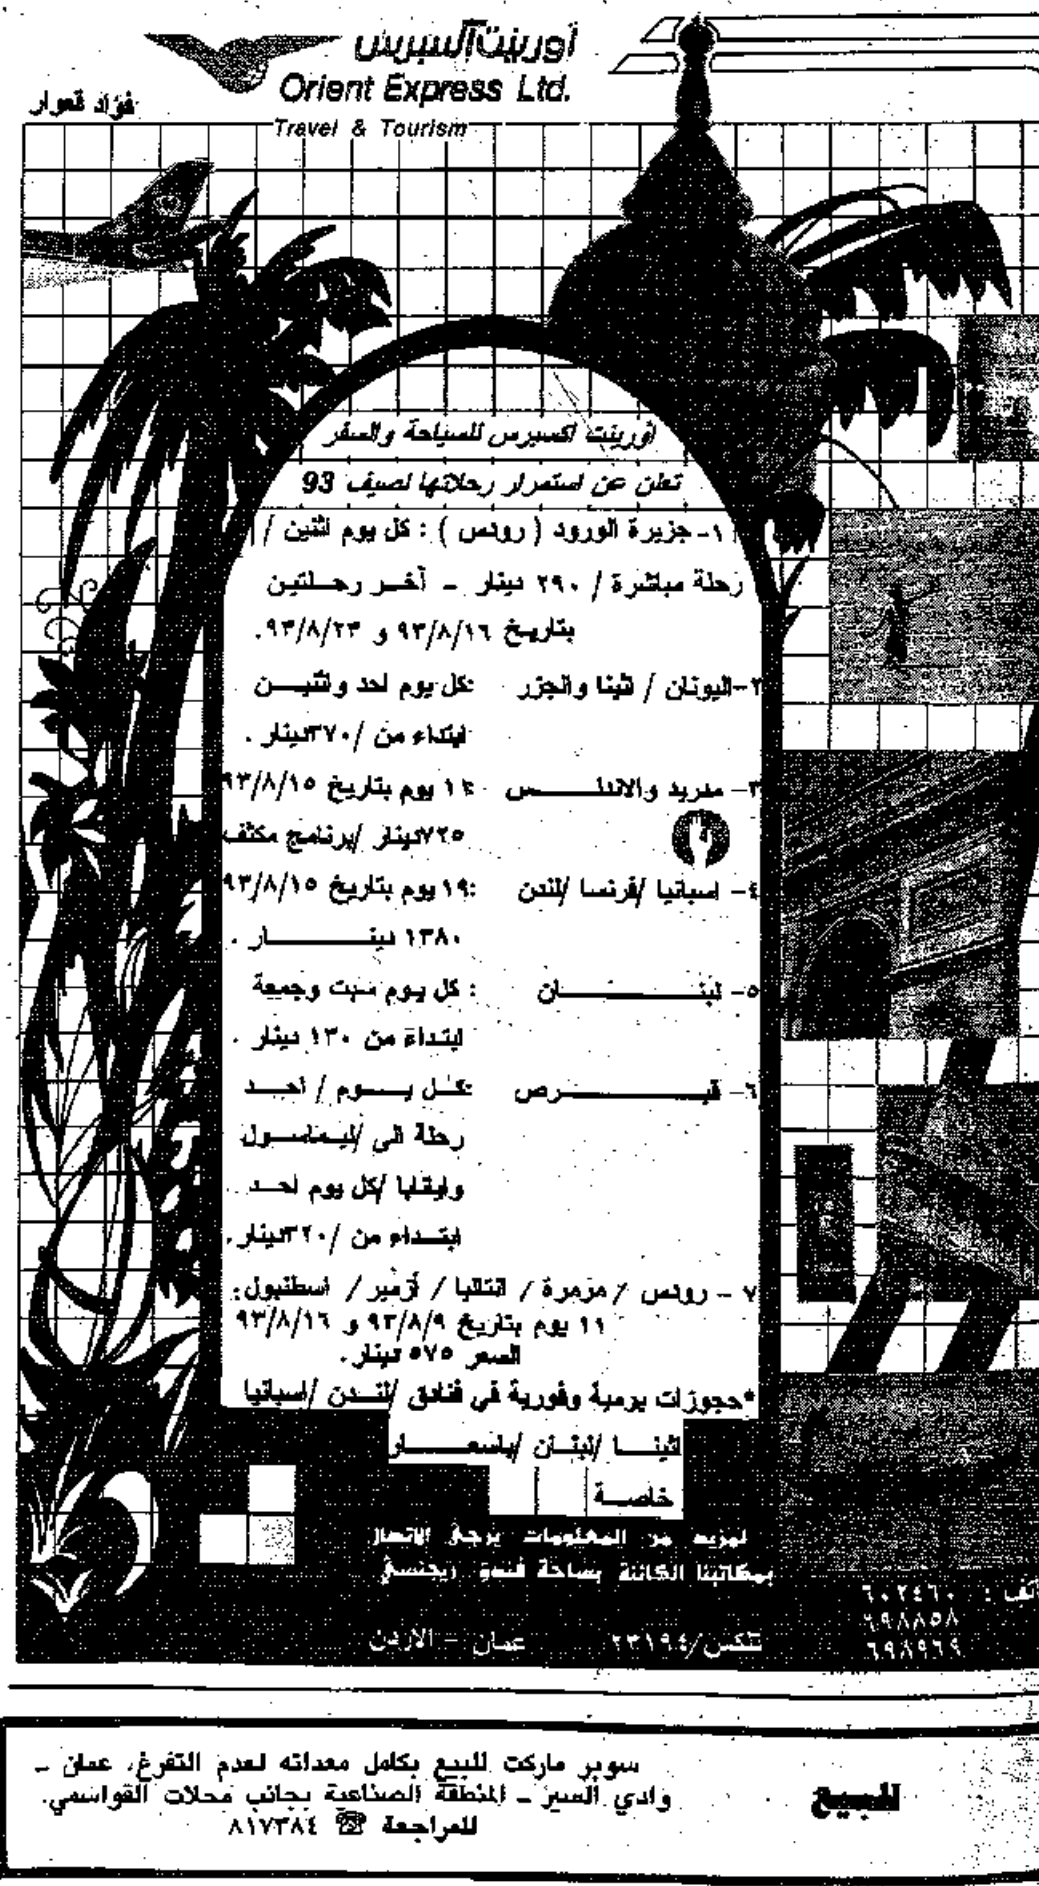 أورينت اكسبرس
Orient Express Ltd.
Travel & Tourism
فؤاد قعوار
أورينت اكسبرس للسياحة والسفر
تعلن عن استمرار رحلاتها لصيف 93
١- جزيرة الورود ( رودس ) : كل يوم اثنين /
رحلة مباشرة / ٢٩٠ دينار - آخر رحلتين
بتاريخ ٩٣/٨/١٦ و ٩٣/٨/٢٣.
٢- اليونان / اثينا والجزر :كل يوم احد واثنين
ابتداء من /٣٧٠دينار .
٣- مدريد والاندلس : ١٢ يوم بتاريخ ٩٣/٨/١٥
٧٢٥دينار /برنامج مكثف
٤- اسبانيا /فرنسا /لندن :١٩ يوم بتاريخ ٩٣/٨/١٥
١٣٨٠ دينار .
٥- لبنان : كل يوم سبت وجمعة
ابتداء من ١٣٠ دينار .
٦- قبرص :كل يوم / احد
رحلة الى /ليماسول
وايانابا /كل يوم احد
ابتداء من /٣٢٠دينار.
٧ - رودس / مرمرة / انتاليا / أزمير / اسطنبول:
١١ يوم بتاريخ ٩٣/٨/٩ و ٩٣/٨/١٦
السعر ٥٧٥ دينار.
*حجوزات يومية وفورية في فنادق /لندن /اسبانيا
اثينا /لبنان /باسعار
خاصة
لمزيد من المعلومات يرجى الاتصال
بمكاتبنا الكائنة بساحة فندق ريجنسي
تلفون : ٦٠٢٤٦٠
٦٩٨٨٥٨
٦٩٨٩٦٩
تلكس/٢٣١٩٤ عمان - الاردن
للبيع
سوبر ماركت للبيع بكامل معداته لعدم التفرغ، عمان -
وادي السير - المنطقة الصناعية بجانب محلات القواسمي.
للمراجعة ☎ ٨١٧٣٨٤